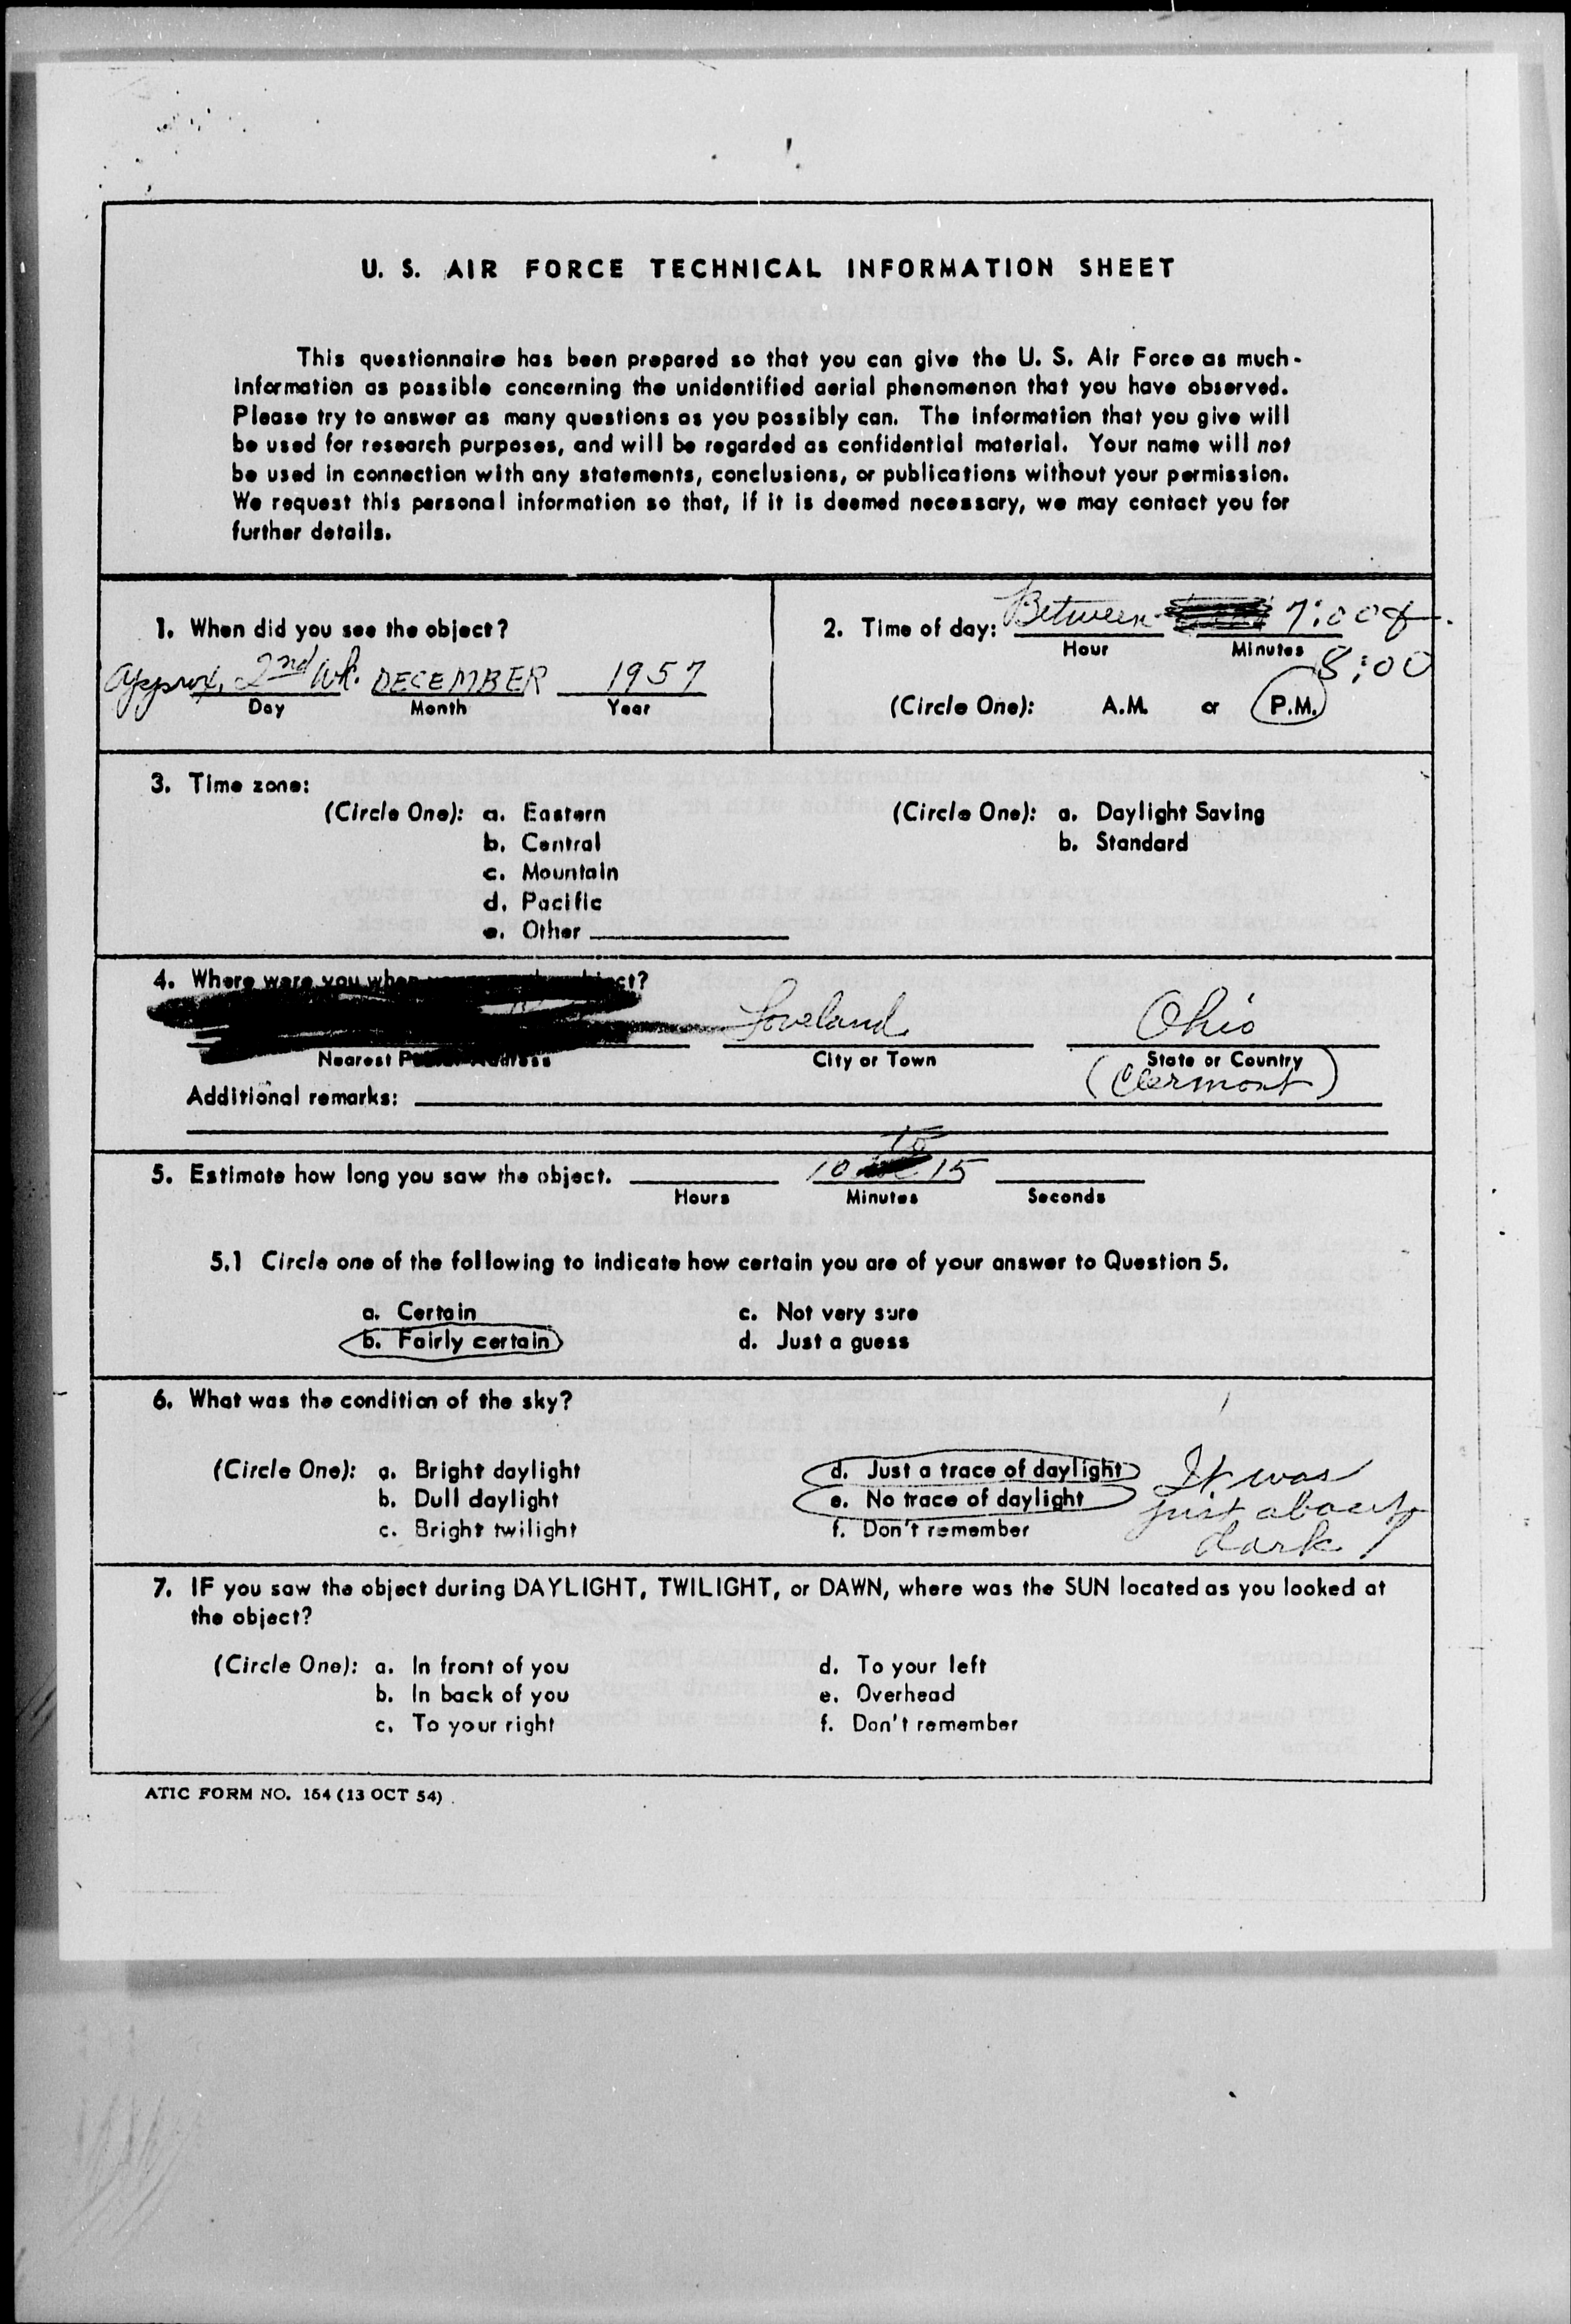 U. S. AIR FORCE TECHNICAL INFORMATION SHEET
This questionnaire has been prepared so that you can give the U. S. Air Force as much
information as possible concerning the unidentified aerial phenomenon that you have observed.
Please try to answer as many questions as you possibly can. The information that you give will
be used for research purposes, and will be regarded as confidential material. Your name will not
be used in connection with any statements, conclusions, or publications without your permission.
We request this personal information so that, if it is deemed necessary, we may contact you for
further details.
1. When did you see the object?
approx. 2nd wk. DECEMBER 1957
Day Month Year
2. Time of day: Between 7:00 &
Hour Minutes
8:00
(Circle One): A.M. or P.M.
3. Time zone:
(Circle One): a. Eastern
b. Central
c. Mountain
d. Pacific
e. Other
(Circle One): a. Daylight Saving
b. Standard
4. Where were you when object?
Loveland Ohio
Nearest City or Town State or Country
(Clermont)
Additional remarks:
to
5. Estimate how long you saw the object. 10 15
Hours Minutes Seconds
5.1 Circle one of the following to indicate how certain you are of your answer to Question 5.
a. Certain c. Not very sure
b. Fairly certain d. Just a guess
6. What was the condition of the sky?
(Circle One): a. Bright daylight
b. Dull daylight
c. Bright twilight
d. Just a trace of daylight
e. No trace of daylight
f. Don't remember
It was
just about
dark
7. IF you saw the object during DAYLIGHT, TWILIGHT, or DAWN, where was the SUN located as you looked at
the object?
(Circle One): a. In front of you d. To your left
b. In back of you e. Overhead
c. To your right f. Don't remember
ATIC FORM NO. 164 (13 OCT 54)